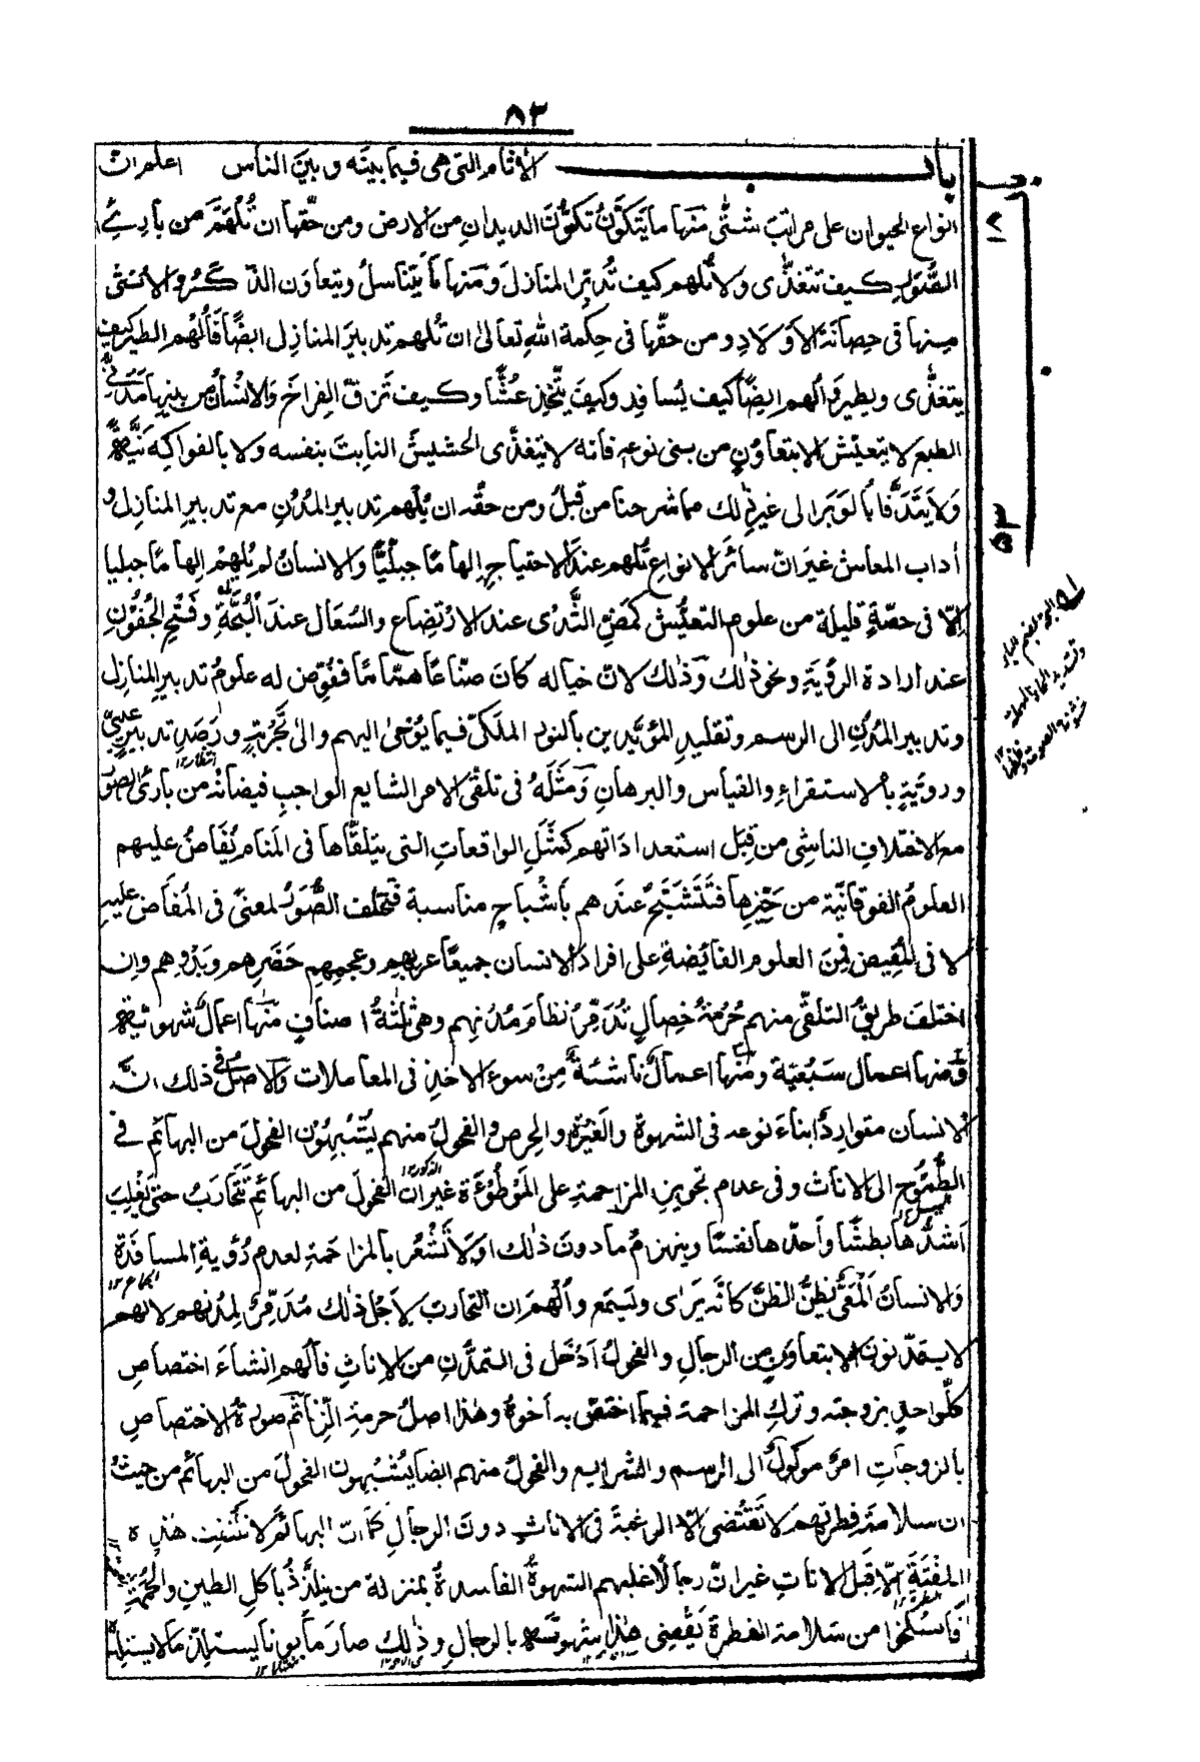 ٨٣
باب الآثام التى هى فيما بينه وبين الناس اعلم ان
انواع الحيوان على مراتب شتّٰى منها ما يتكوّنُ تكوُّنَ الديدانِ من الارض ومن حقّها ان تُلهَمَ من بارِئِ
الصُّوَرِ كيف تتغذّٰى ولا تُلهم كيف تُدبّر المنازلَ ومنها ما يَتناسلُ ويتعاون الذّكَرُ والانثى
منها فى حِضانة الاَولادِ ومن حقّها فى حِكمة اللهِ تعالىٰ ان تُلهم تدبيرَ المنازِل ايضًا فَاُلهم الطير كيف
يتغذّٰى ويطير واُلهم ايضًا كيف يُسافِد وكيف يتّخذ عُشًّا وكيف تَزقّ الفِراخَ والانسانُ من بينِها مَدَنىُّ
الطبع لا يتعيّش الا بتعاوُنٍ من بنى نوعهٖ فانه لا يتغذّى الحشيشَ النابتَ بنفسه ولا بالفواكِهِ نَيِّئَةً
وَلا يَتَدَفّأ بالوَبَر الى غير ذٰلك مما شرحنا من قبلُ ومن حقّه ان يُلهم تدبير المُدُنِ مع تدبير المنازِل و
اٰداب المعاش غيرَ انّ سائرَ الانواعِ تُلهم عندَ الاحتياجِ اِلهامًا جبلّيًّا والانسانُ لم يُلهم اِلهامًا جبليا
اِلّا فى حصّةٍ قليلة من علوم التعيُّش كمَصِّ الثَّدْى عند الارْتضِاع والسُعَال عندَ الْبُحَّةِ وفَتْحِ الجُفُوْنِ
عند ارادة الرؤيةِ ونحو ذٰلك وَذٰلك لانّ خياله كانَ صنّاعًا همّامًا ففُوّض له علومُ تدبيرِ المنازِل
وتدبير المُدُنِ الى الرسمِ وتقليدِ المؤيّدين بالنور الملكىّ فيما يُوْحٰى اليهم والىٰ تَجْرُبةٍ ورَصَدِ تدبيرٍ غيبىّ
ورويّةٍ بالاستقراءِ والقياس والبرهانِ وَمَثَلُهُ فى تلقّى الامر الشايع الواجبِ فيضانُه من بارئ الصُّوَر
مع الاختلافِ الناشِى من قِبَل استعداداتهم كمَثَلِ الواقعاتِ التى يتلقّاها فى المَنام يُفَاضُ عليهم
العلومُ الفوقانيّة من حَيّزِها فتَتَشَبَّحُ عندَهم بأَشْباحٍ مناسبة فتختلف الصُّوَرُ لمعنىً فى المُفَاضِ عليه
لا فى المُفِيض فمِنَ العلوم الفائضةِ على افراد الانسان جميعًا عربِهم وعجمِهِم حَضَرِهم وبَدْوِهم وان
اختلفَ طريقُ التلقّى منهم حُرْمَةُ خِصالٍ تُدَمِّرُ نظامَ مُدُنِهم وهى ثلٰثةُ اصنافٍ منها اعمالٌ شهويّة
ومنها اعمال سَبُعيّة ومنها اعمالٌ ناشئةٌ مِنْ سوء الاخذِ فى المعاملات والاصلُ فى ذلك انَّ
الانسان متوارِدٌ ابناءَ نوعه فى الشهوة والغَيْرة والحِرص والفحولُ منهم يُشبِهُوْنَ الفحولَ من البهائِمِ فى
الطُّمُوح الى الاناث وفى عدم تجويزِ المزاحمةِ على المَوْطُوْءَة غيرَ انّ الفحولَ من البهائِمِ تَتَحَاربُ حتى يَغْلِبَ
اَشدُّها بَطشًا واَحدُّها نفسًا وينهزمُ ما دون ذٰلك اَوْلَا تَشْعُر بالمزاحَمةِ لعدم رُؤيةِ المسافَدةِ
والانسانُ اَلْمَعىٌّ يظنُّ الظنَّ كانّه يَرٰى ويَسمَع واُلْهم ان التحاربَ لِاَجْل ذٰلك مُدَمِّرٌ لِمُدُنهم لانهم
لا يتمدّنونَ الا بتعاونٍ من الرجالِ والفحولُ اَدْخَلُ فى التمدُّنِ من الاِناثِ فَاُلهم انشاءَ اختصاصِ
كلِّ واحدٍ بزوجته وتركِ المزاحمة فيما اختصّ به أخوهُ وهٰذا اصلُ حرمةِ الزِّنا ثم صورةُ الاختصاصِ
بالزوجاتِ امرٌ موكولٌ الى الرسم والشرايع والفحولُ منهم ايضا يُشْبِهون الفحولَ من البهائم من حيثُ
ان سلامةَ فطرتِهم لا تَقْتضى الّا الرغبةَ فى الاناثِ دونَ الرجالِ كما انّ البهائمَ لا تلتفت هٰذه
اللَفْتةَ اِلّا قِبَلَ الاناثِ غيرَ انّ رجالًا غلبهم الشهوةُ الفاسدةُ بمنزلة من يتلذّذُ باكلِ الطينِ والحُمَمَةِ
فَانسلخوا من سلامة الفطرة يَقْضِى هٰذا شهوتَه بالرجالِ وذٰلك صارَ مأبونًا يستلِذّ ما لا يستلِذُّ